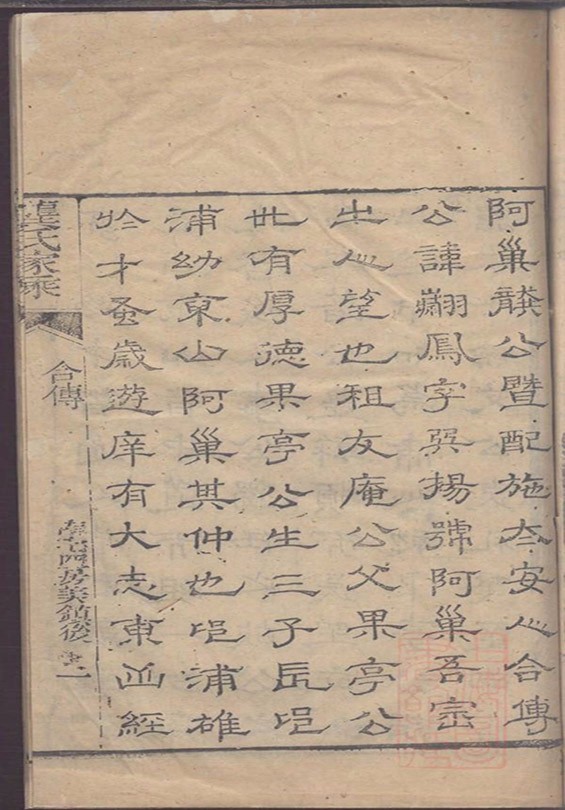 阿巢龔公暨配施太安人合傳
公諱翽鳳字吳揚號阿巢吾宗
之人望也祖友庵公父果亭公
世有厚德果亭公生三子長邑
浦幼東山阿巢其仲也邑浦雄
於才蚤歲遊庠有大志東山經
龔氏家乘
合傳
四房美鎮後 二